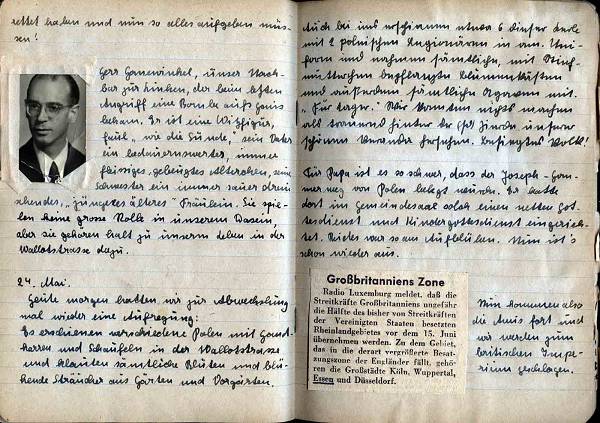 rettet haben und nun so alles aufgeben müs-
sen!
Herr Ganewinkel, unser Nach-
bar zur Linken, der beim ersten
Angriff eine Bombe aufs Haus
bekam. Er ist eine Witzfigur,
faul „wie die Sünde", sein Vater
ein bedauernswerter, immer
fleissiges, gebeugtes Alterchen, seine
Schwester ein immer sauer drein
schendes, „jüngstes älteres" Fräulein. Sie spie-
len keine grosse Rolle in unserem Dasein,
aber sie gehören halt zu unserm Leben in der
Wallotstrasse dazu.
24. Mai.
Heute morgen hatten wir zur Abwechslung
mal wieder eine Aufregung:
Es erschienen verschiedene Polen mit Hand-
karren und Schaufeln in der Wallotstrasse
und klauten sämtliche Blüten und blü-
hende Sträucher aus Gärten und Vorgärten.
Auch bei uns erschienen etwa 6 dieser Kerle
mit 2 polnischen Legionären in am. Uni-
form und nahmen sämtliche, mit Stief-
mütterchen bepflanzte Blumenkästen
und ausserdem sämtliche Agaven mit.
„Für Lager." Wir konnten nichts machen
als trauernd hinter der Zierde unserer
schönen Veranda hersehen. Besiegtes Volk!
Für Papa ist es so schwer, dass der Joseph-Hom-
mer-weg von Polen belegt wurde. Er hatte
dort im Gemeindesaal solch einen netten Got-
tesdienst und Kindergottesdienst eingerich-
tet. Dieses war so am Aufblühen. Nun ist's
schon wieder aus.
Großbritanniens Zone
Radio Luxemburg meldet, daß die
Streitkräfte Großbritanniens ungefähr
die Hälfte des bisher von Streitkräften
der Vereinigten Staaten besetzten
Rheinlandgebietes vor dem 15. Juni
übernehmen werden. Zu dem Gebiet,
das in die derart vergrößerte Besat-
zungszone der Engländer fällt, gehö-
ren die Großstädte Köln, Wuppertal,
Essen und Düsseldorf.
Nun kommen also
die Amis fort und
wir werden zum
britischen Impe-
rium geschlagen.